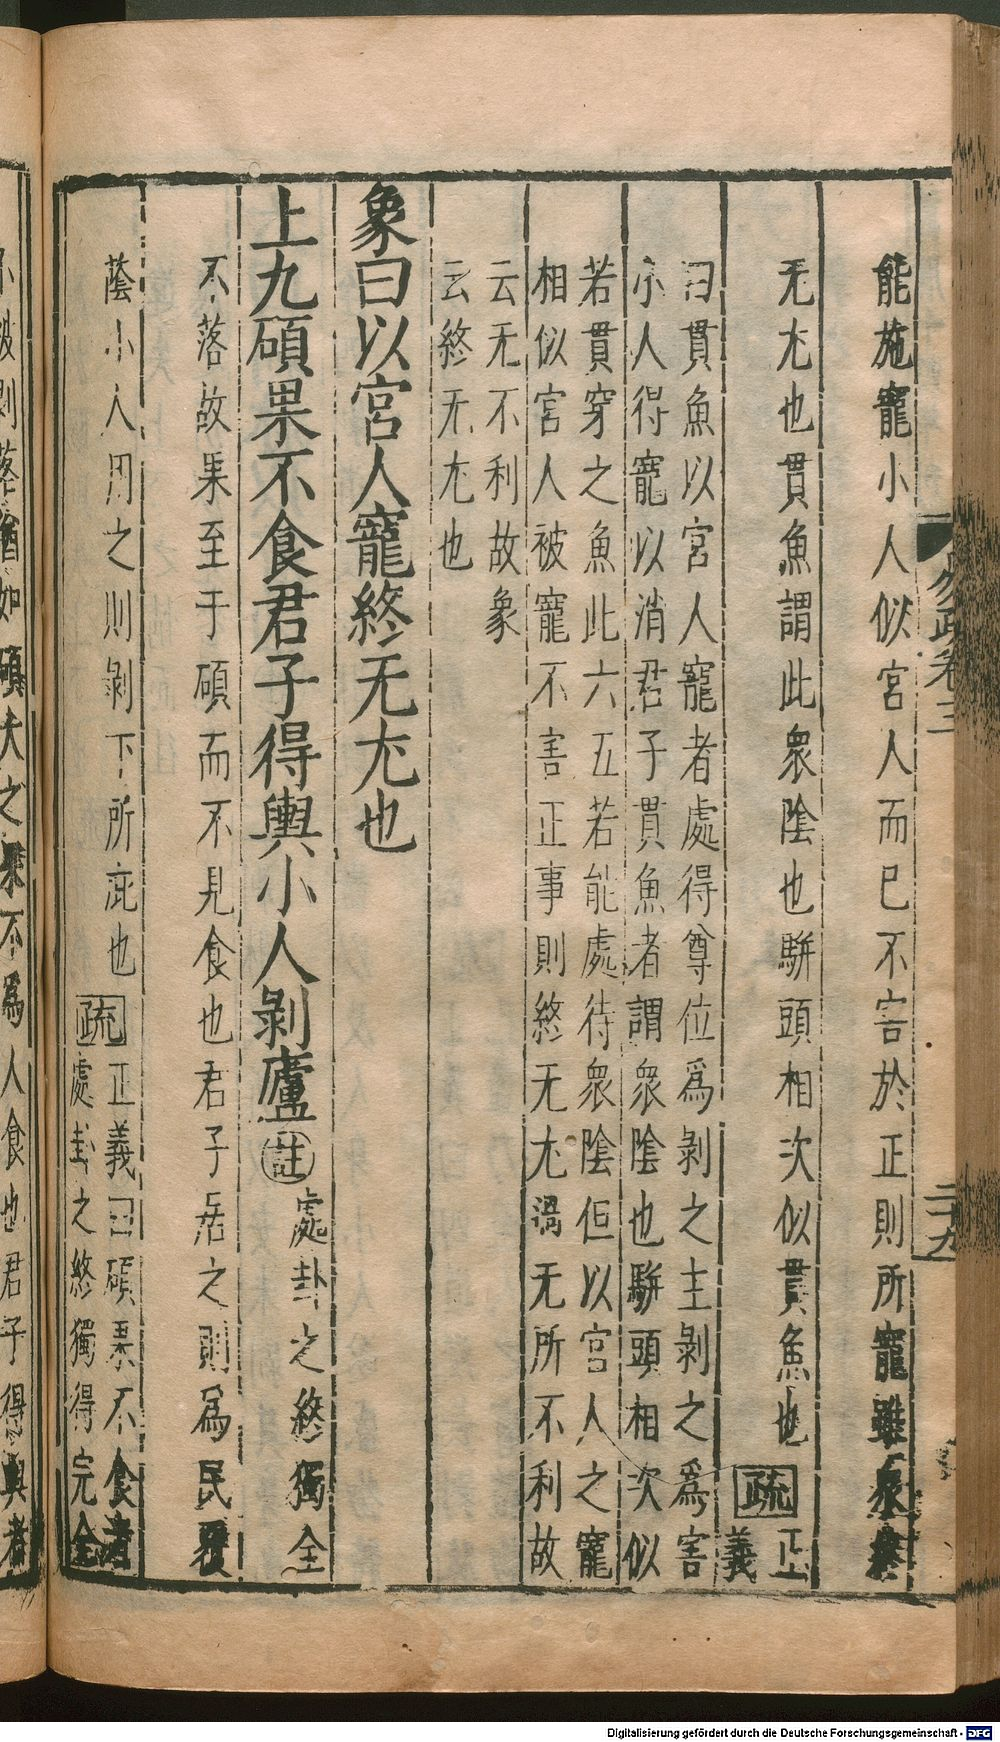 易疏卷三
二十九
能施寵小人似宮人而已不害於正則所寵雖衆終
无尤也貫魚謂此衆陰也駢頭相次似貫魚也疏正
義
曰貫魚以宮人寵者處得尊位爲剥之主剥之爲害
小人得寵以消君子貫魚者謂衆陰也駢頭相次似
若貫穿之魚此六五若能處待衆陰但以宮人之寵
相似宮人被寵不害正事則終无尤過无所不利故
云无不利故象
云終无尤也
象曰以宮人寵終无尤也
上九碩果不食君子得輿小人剥廬註處卦之終獨全
不落故果至于碩而不見食也君子居之則爲民覆
蔭小人用之則剥下所庇也疏正義曰碩果不食者
處卦之終獨得完全
不被剥落猶如碩大之果不爲人食也君子得輿者
Digitalisierung gefördert durch die Deutsche Forschungsgemeinschaft - DFG